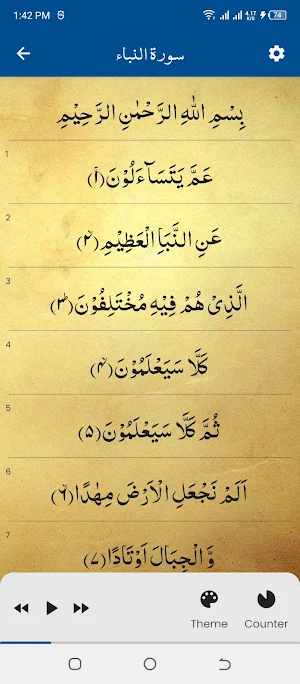 1:42 PM 4.17 K/s 74
سورة النباء
بِسْمِ اللهِ الرَّحْمٰنِ الرَّحِيْمِ
1
عَمَّ يَتَسَآءَلُوْنَ(۱)
2
عَنِ النَّبَاِ الْعَظِيْمِ(۲)
3
الَّذِىْ هُمْ فِيْهِ مُخْتَلِفُوْنَ(۳)
4
كَلَّا سَيَعْلَمُوْنَ(۴)
5
ثُمَّ كَلَّا سَيَعْلَمُوْنَ(۵)
6
اَلَمْ نَجْعَلِ الْاَرْضَ مِهٰدًا(۶)
7
وَّ الْجِبَالَ اَوْتَادًا(۷)
Theme Counter